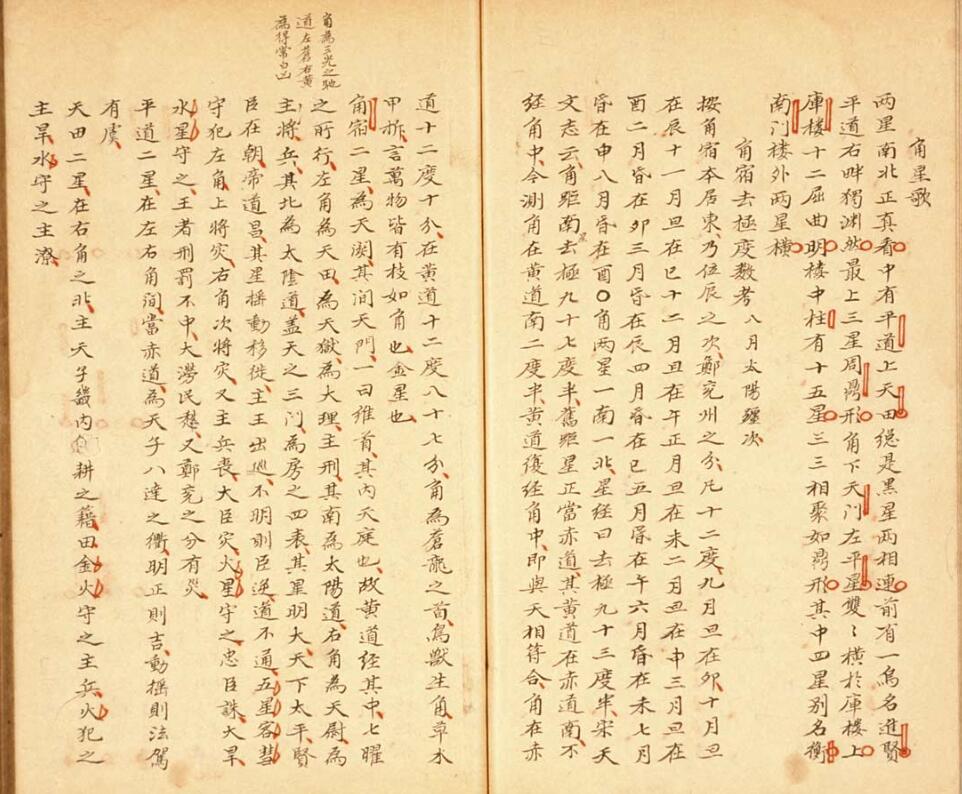 角星歌
两星南北正真看中有平道上天田總是黑星两相連前有一烏名進賢
平道右畔獨淵然最上三星周鼎形角下天门左平星雙〻橫於庫楼上
庫楼十二屈曲明楼中柱有十五星三三相聚如鼎形其中四星别名衡
南门楼外两星橫
角宿去極度数考八月太陽躔次
按角宿本居東乃位辰之次鄭兖州之分凡十二度九月旦在卯十月旦
在辰十一月旦在巳十二月旦在午正月旦在未二月旦在申三月旦在
酉二月昏在卯三月昏在辰四月昏在巳五月昏在午六月昏在未七月
昏在申八月昏在酉〇角两星一南一北星经曰去極九十三度半宋天
文志云角距南星去極九十七度半舊距星正當赤道其黄道在赤道南不
经角中今測角在黄道南二度半黄道復经角中即與天相符合角在赤
角為三光之馳
道左蒼右黄
為得常曰凶
道十二度十分在黄道十二度八十七分角為蒼龍之首鳥獸生角草木
甲拆言萬物皆有枝如角也金星也
角宿二星為天闕其间天門一曰維首其内天庭也故黄道经其中七曜
之所行左角為天田為天獄為大理主刑其南為太陽道右角為天尉為
主將兵其北為太陰道盖天之三门為房之四表其星明大天下太平賢
臣在朝帝道昌其星摇動移徙主王出廵不明則臣逆道不通五星客彗
守犯左角上將灾右角次將灾又主兵喪大臣灾火星守之忠臣誅大旱
水星守之王者刑罰不中大澇民愁又鄭兖之分有災
平道二星在左右角间當赤道為天子八達之衢明正則吉動摇則法駕
有虞
天田二星在右角之北主天子畿内耕之籍田金火守之主兵火犯之
主旱水守之主潦